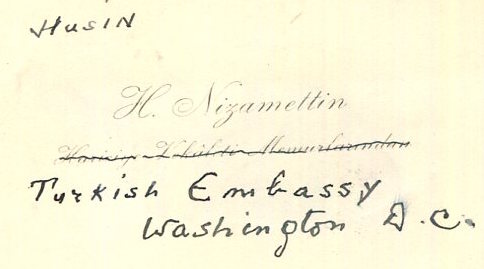 Husin
H. Nizamettin
Hariciye Vekâleti Memurlarından
Turkish Embassy
Washington D.C.